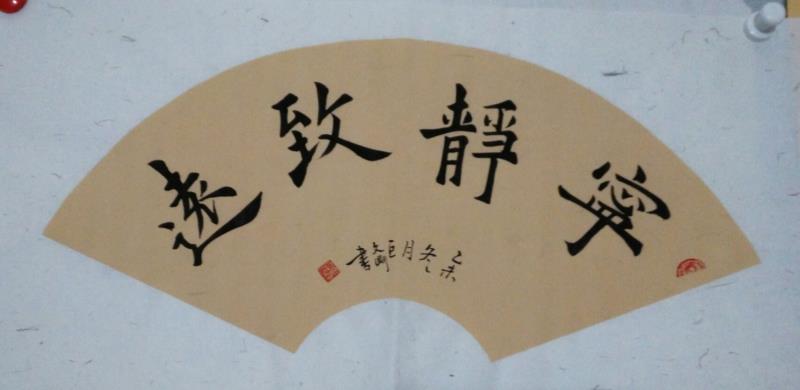 寧靜致遠
乙未冬月
書